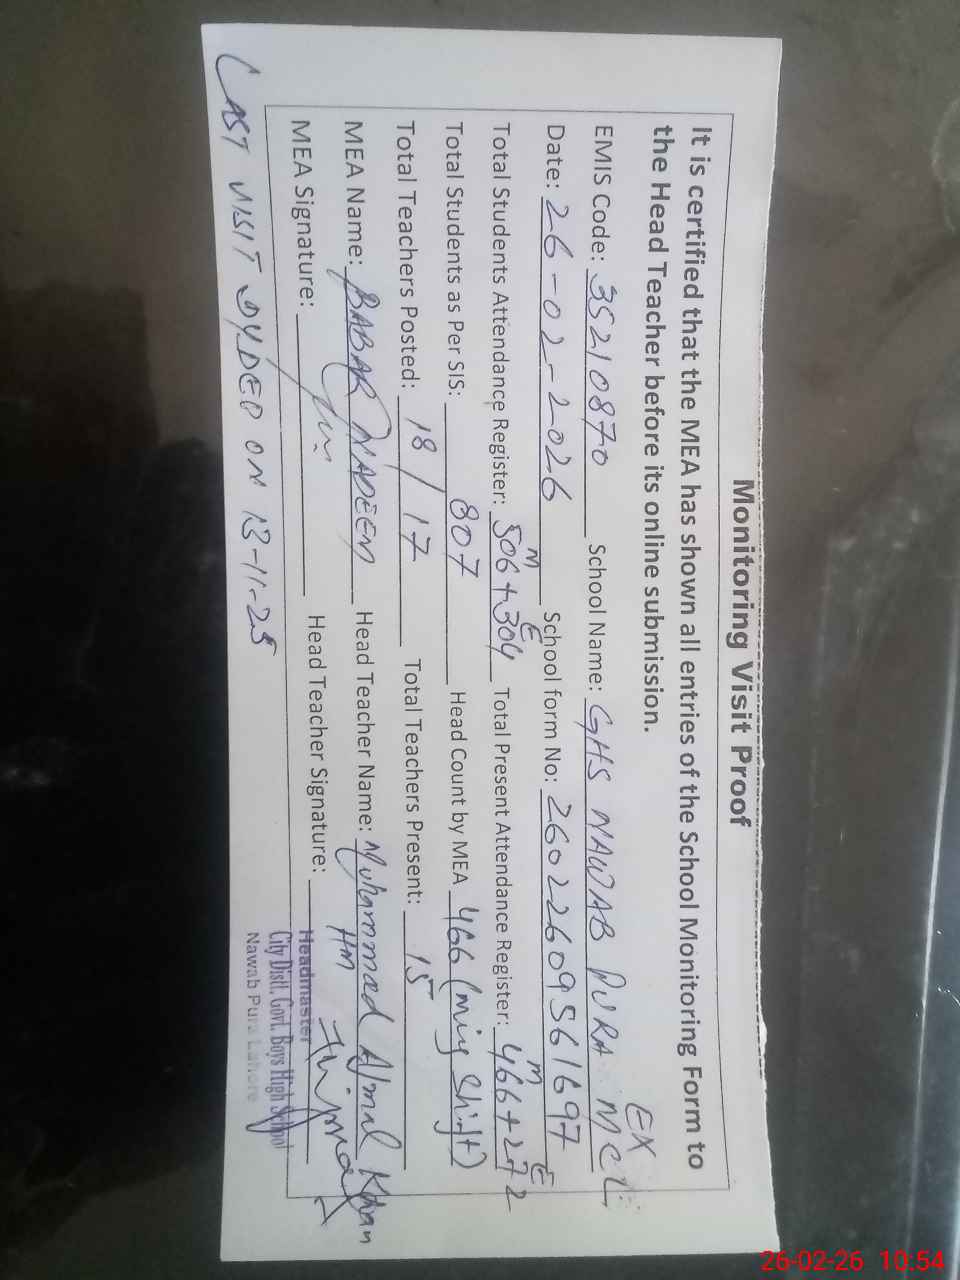 Monitoring Visit Proof
It is certified that the MEA has shown all entries of the School Monitoring Form to
the Head Teacher before its online submission.
EMIS Code: 35210870 School Name: GHS NAWAB PURA EX MCL
Date: 26-02-2026 School form No: 26022609561697
Total Students Attendance Register: 506 M + 304 E Total Present Attendance Register: 466 M + 272 E
Total Students as Per SIS: 807 Head Count by MEA 466 (Ming Shift)
Total Teachers Posted: 18/17 Total Teachers Present: 15
MEA Name: BABAR NADEEM Head Teacher Name: Muhammad Ajmal Khan
HM
MEA Signature: Head Teacher Signature:
Headmaster
City Distt. Govt. Boys High School
Nawab Pura Lahore
LAST VISIT DYDEO ON 13-11-25
26-02-26 10:54